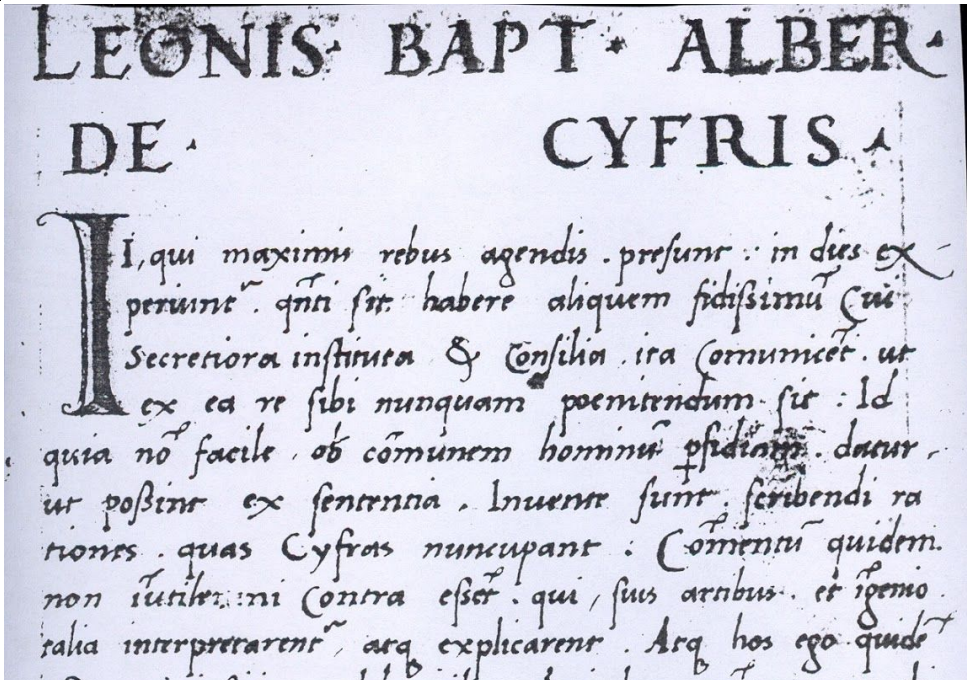 LEONIS · BAPT · ALBER ·
DE · CYFRIS ·
II, qui maximis rebus agendis . presunt : in dies ex
periunt᷑ . qn̄ti sit habere aliquem fidissimū Cui
Secretiora instituta & Consilia . ita Comunicēt . ut
ex ea re sibi nunquam poenitendum sit : Id
quia nō facile . ob cōmunem hominū ꝑfidiam . datur ,
ut possint ex sententia . Invente sunt . scribendi ra
tiones . quas Cyfras nuncupant : Cōmentū quidem .
non īutile : ni Contra essēt . qui , suis artibus . et īgenio
talia interpretarent᷑ , atq explicarent . Atq hos ego quidē